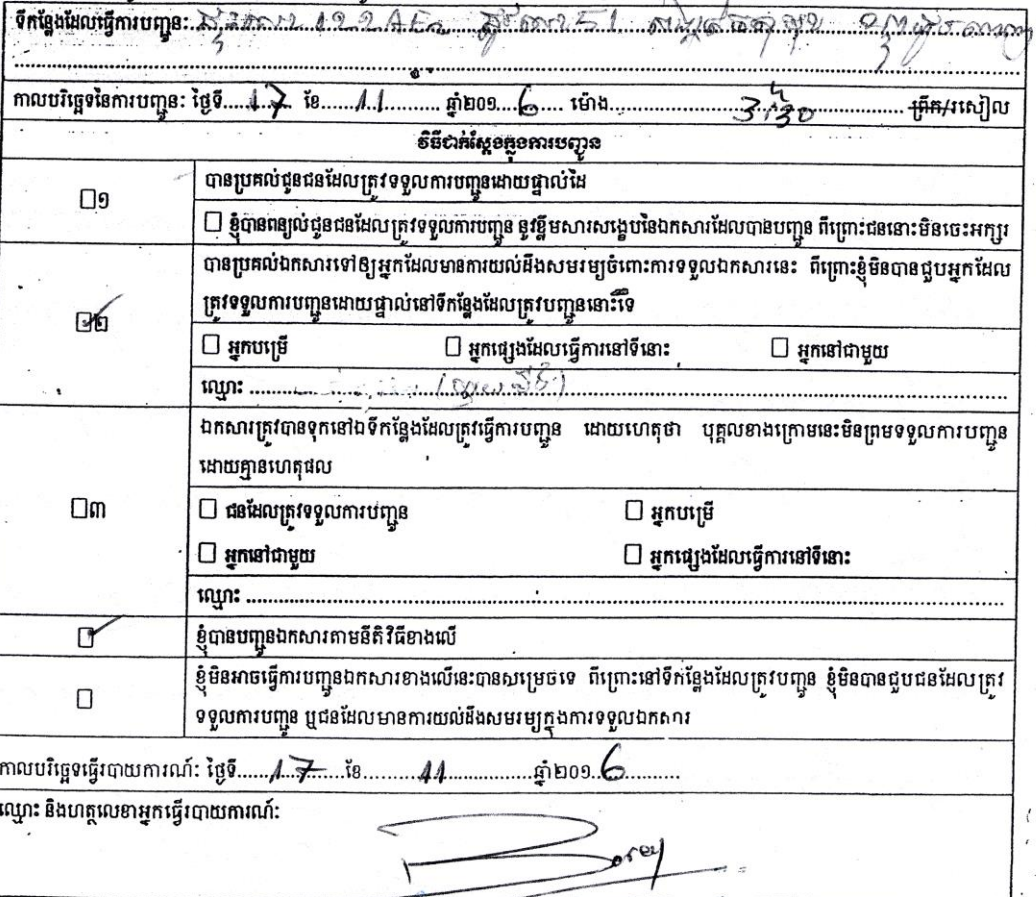 ទីកន្លែងដែលធ្វើការបញ្ជូន: 122 AE 51
កាលបរិច្ឆេទនៃការបញ្ជូន: ថ្ងៃទី.....17..... ខែ.....11..........ឆ្នាំ២០១....6..... ម៉ោង..........3:30..........ព្រឹក/រសៀល
វិធីជាក់ស្តែងក្នុងការបញ្ជូន
□១
បានប្រគល់ជូនជនដែលត្រូវទទួលការបញ្ជូនដោយផ្ទាល់ដៃ
□ ខ្ញុំបានពន្យល់ជូនជនដែលត្រូវទទួលការបញ្ជូន នូវខ្លឹមសារសង្ខេបនៃឯកសារដែលបានបញ្ជូន ពីព្រោះជននោះមិនចេះអក្សរ
☑២
បានប្រគល់ឯកសារទៅឲ្យអ្នកដែលមានការយល់ដឹងសមរម្យចំពោះការទទួលឯកសារនេះ ពីព្រោះខ្ញុំមិនបានជួបអ្នកដែល
ត្រូវទទួលការបញ្ជូនដោយផ្ទាល់នៅទីកន្លែងដែលត្រូវបញ្ជូននោះទេ
□ អ្នកបម្រើ □ អ្នកផ្សេងដែលធ្វើការនៅទីនោះ □ អ្នកនៅជាមួយ
ឈ្មោះ
□៣
ឯកសារត្រូវបានទុកនៅឯទីកន្លែងដែលត្រូវធ្វើការបញ្ជូន ដោយហេតុថា បុគ្គលខាងក្រោមនេះមិនព្រមទទួលការបញ្ជូន
ដោយគ្មានហេតុផល
□ ជនដែលត្រូវទទួលការបញ្ជូន □ អ្នកបម្រើ
□ អ្នកនៅជាមួយ □ អ្នកផ្សេងដែលធ្វើការនៅទីនោះ
ឈ្មោះ
☑ ខ្ញុំបានបញ្ជូនឯកសារតាមនីតិវិធីខាងលើ
□ ខ្ញុំមិនអាចធ្វើការបញ្ជូនឯកសារខាងលើនេះបានសម្រេចទេ ពីព្រោះនៅទីកន្លែងដែលត្រូវបញ្ជូន ខ្ញុំមិនបានជួបជនដែលត្រូវ
ទទួលការបញ្ជូន ឬជនដែលមានការយល់ដឹងសមរម្យក្នុងការទទួលឯកសារ
កាលបរិច្ឆេទធ្វើរបាយការណ៍: ថ្ងៃទី......17......ខែ..........11..........ឆ្នាំ២០១..6..........
ឈ្មោះ និងហត្ថលេខាអ្នកធ្វើរបាយការណ៍:
Borey